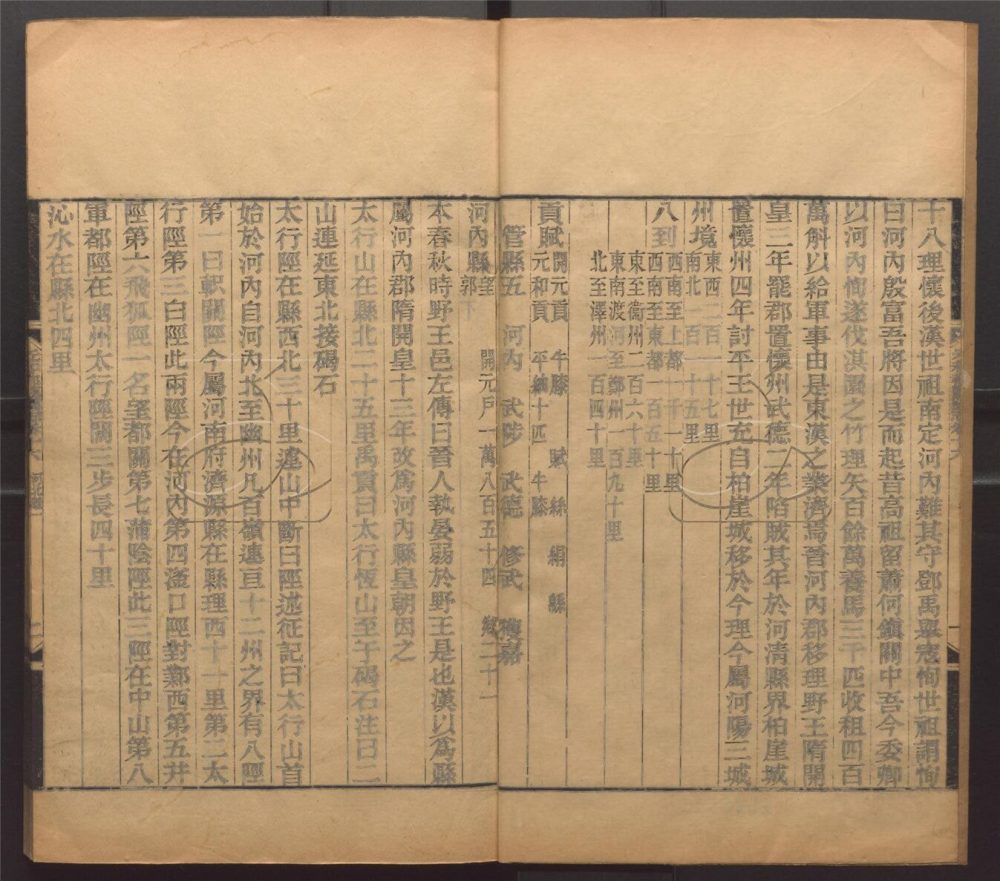 十八理懷後漢世祖南定河內難其守鄧禹舉寇恂世祖謂恂
曰河內殷富吾將因是而起昔高祖留蕭何鎮關中吾今委卿
以河內恂遂伐淇園之竹理矢百餘萬養馬二千匹收租四百
萬斛以給軍事由是東漢之業濟焉晉河內郡移理野王隋開
皇三年罷郡置懷州武德二年陷賊其年於河清縣界柏崖城
置懷州四年討平王世充自柏崖城移於今理今屬河陽三城
州境東西二百一十七里
南北一百一十五里
八到西南至上都一千一十里
西南至東都一百五十里
東至衞州二百六十里
東南渡河至鄭州一百九十里
北至澤州一百四十里
貢賦開元貢 牛膝 賦 絲 絹 緜
元和貢 平紬十匹 牛膝
管縣五 河內 武陟 武德 修武 獲嘉
河內縣望 開元戶一萬八百五十四 鄉二十一
郭下
本春秋時野王邑左傳曰晉人執晏弱於野王是也漢以爲縣
屬河內郡隋開皇十三年改爲河內縣皇朝因之
太行山在縣北二十五里禹貢曰太行恆山至于碣石注曰二
山連延東北接碣石
太行陘在縣西北三十里連山中斷曰陘述征記曰太行山首
始於河內自河內北至幽州凡百嶺連亘十二州之界有八陘
第一曰軹關陘今屬河南府濟源縣在縣理西十一里第二太
行陘第三白陘此兩陘今在河內第四滏口陘對鄴西第五井
陘第六飛狐陘一名望都關第七蒲陰陘此三陘在中山第八
軍都陘在幽州太行陘闊三步長四十里
沁水在縣北四里